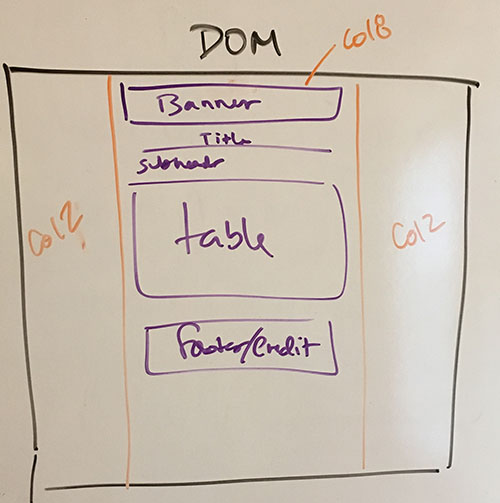 DOM
Col8
Banner
Title
Subheader
Col2
table
Col2
footer/Credit